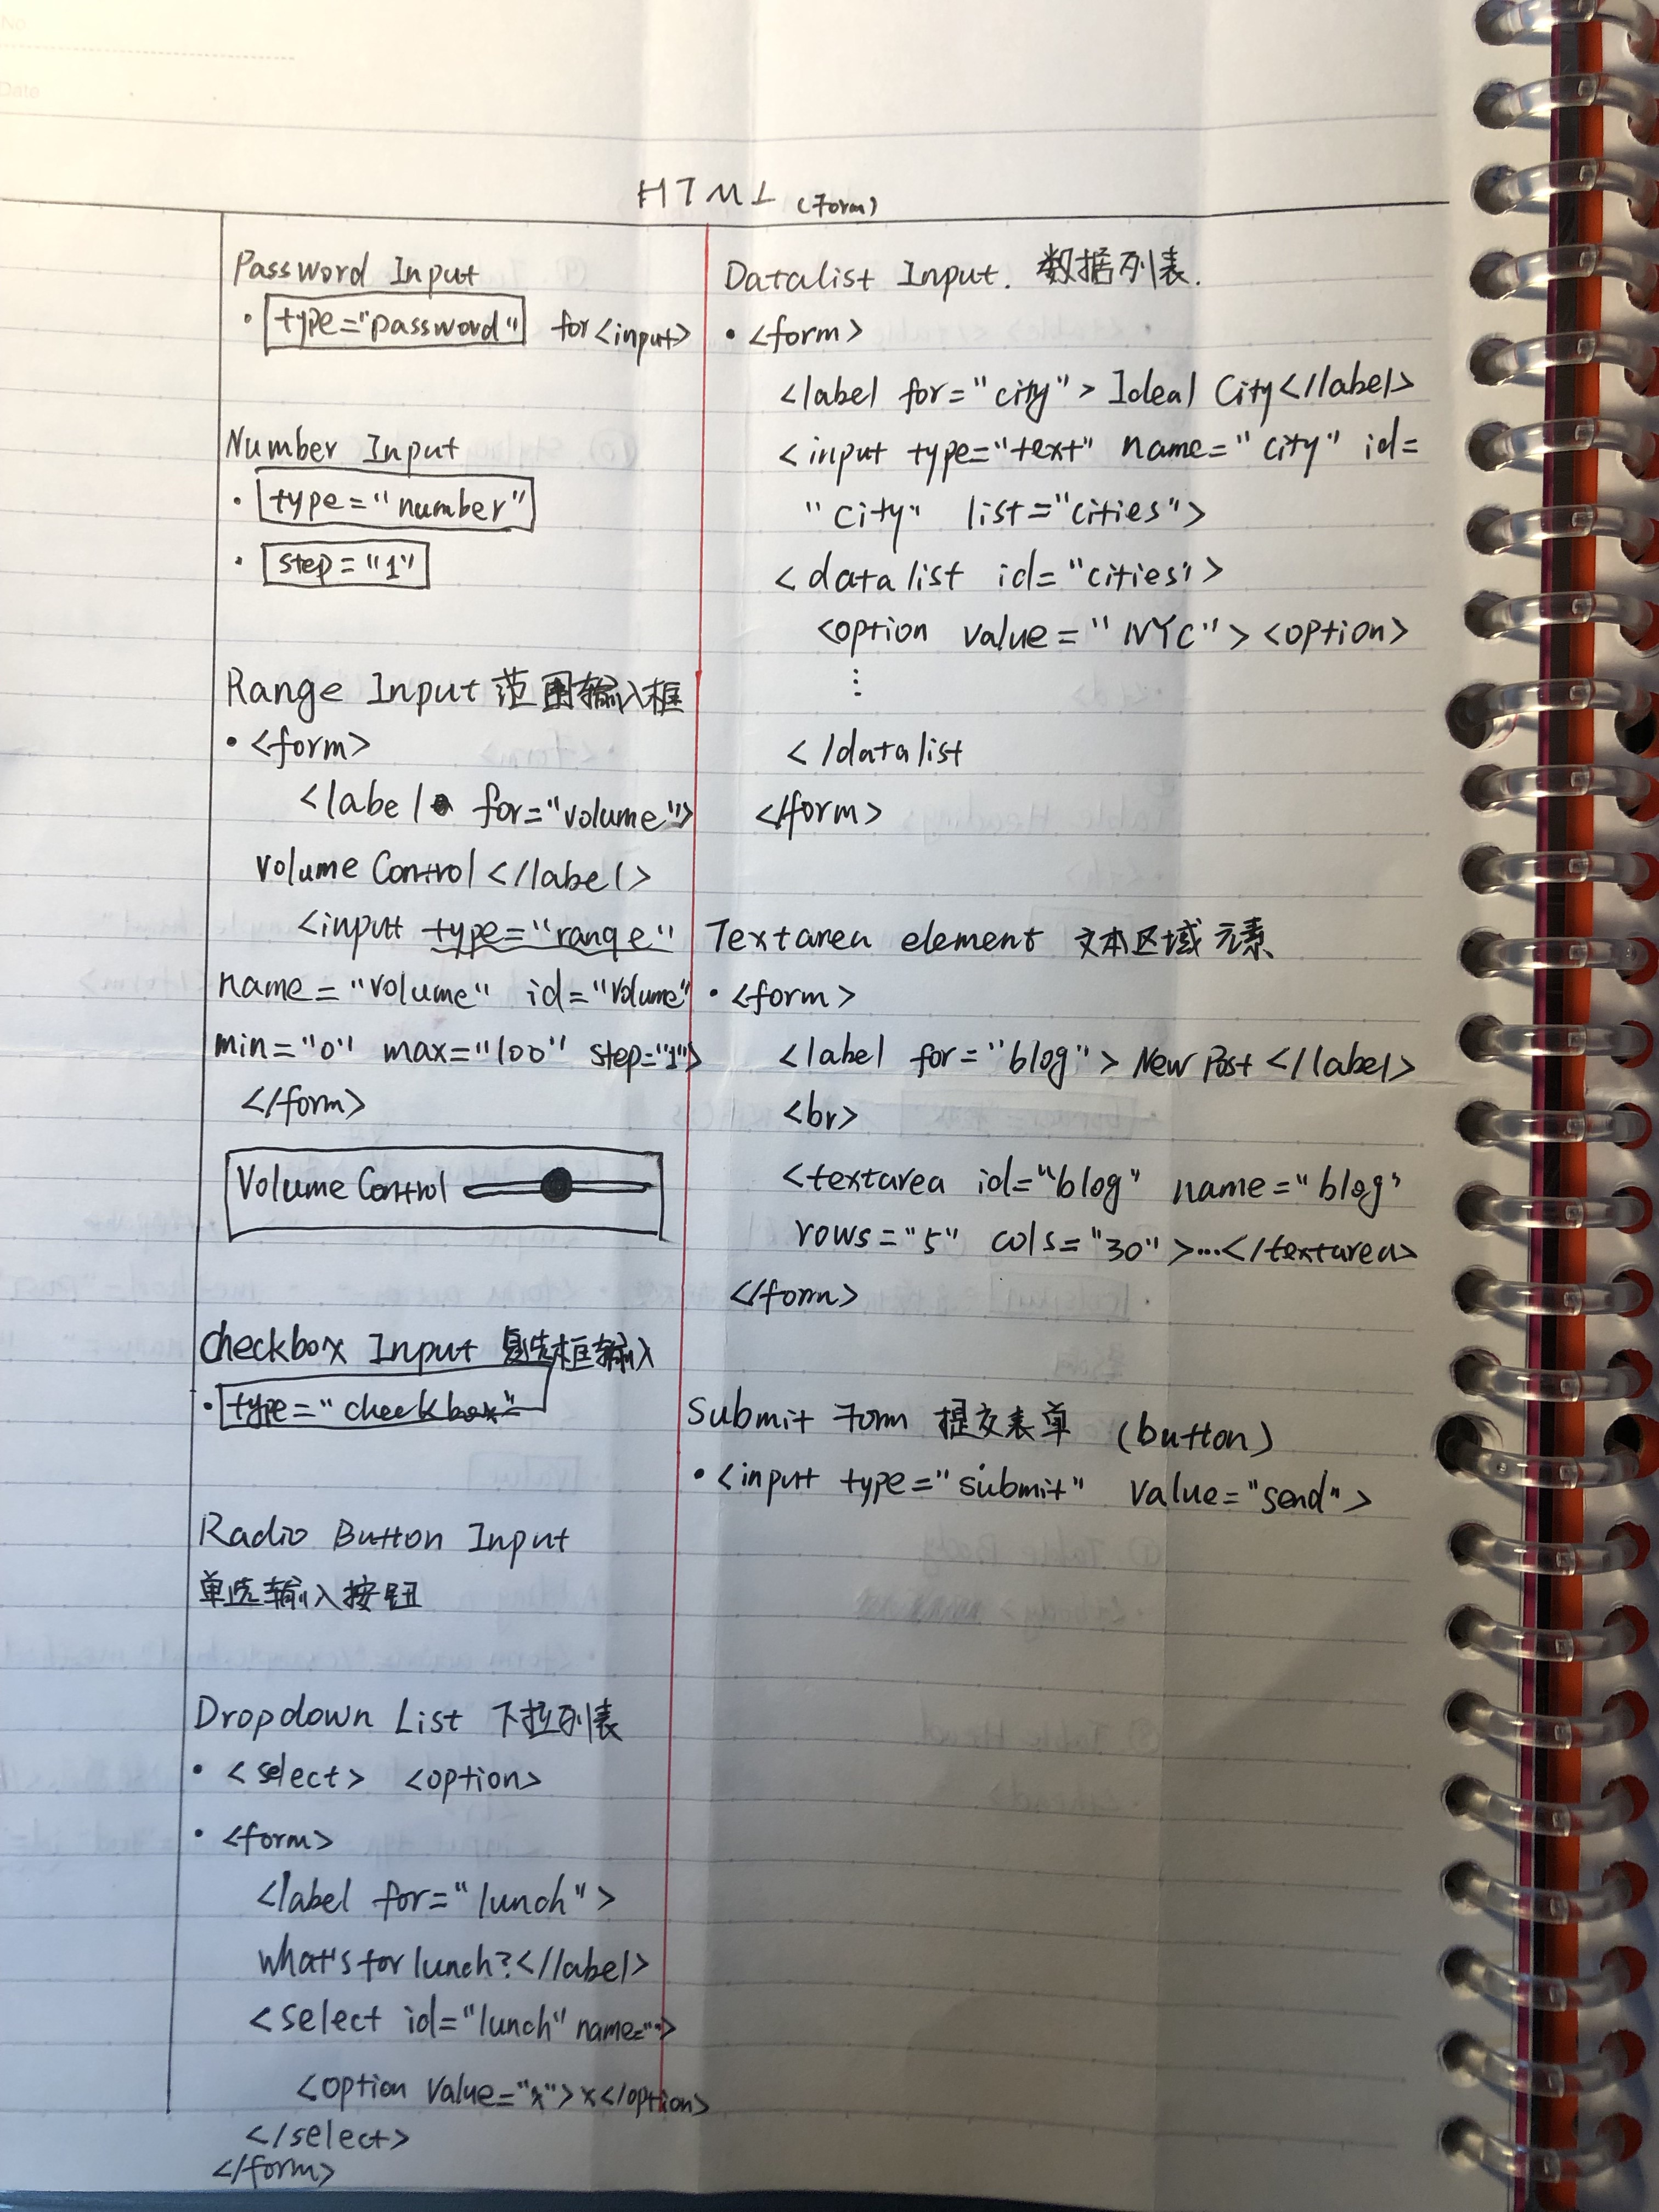 No
Date
HTML (Form)
Password Input
· type="password" for <input>
Number Input
· type="number"
· step="1"
Range Input 范围输入框
· <form>
<label for="volume">
Volume Control </label>
<input type="range"
name="volume" id="volume"
min="0" max="100" step="1">
</form>
Volume Control
Checkbox Input 复选框输入
· type="checkbox"
Radio Button Input
单选输入按钮
Dropdown List 下拉列表
· <select> <option>
· <form>
<label for="lunch">
what's for lunch?</label>
<select id="lunch" name="">
<option value="x">x</option>
</select>
</form>
Datalist Input. 数据列表.
· <form>
<label for="city"> Ideal City</label>
<input type="text" name="city" id=
"city" list="cities">
<datalist id="cities">
<option value="NYC"> <option>
⋮
</datalist
</form>
Textarea element 文本区域元素
· <form>
<label for="blog"> New Post </label>
<br>
<textarea id="blog" name="blog"
rows="5" cols="30">...</textarea>
</form>
Submit Form 提交表单 (button)
· <input type="submit" value="send">